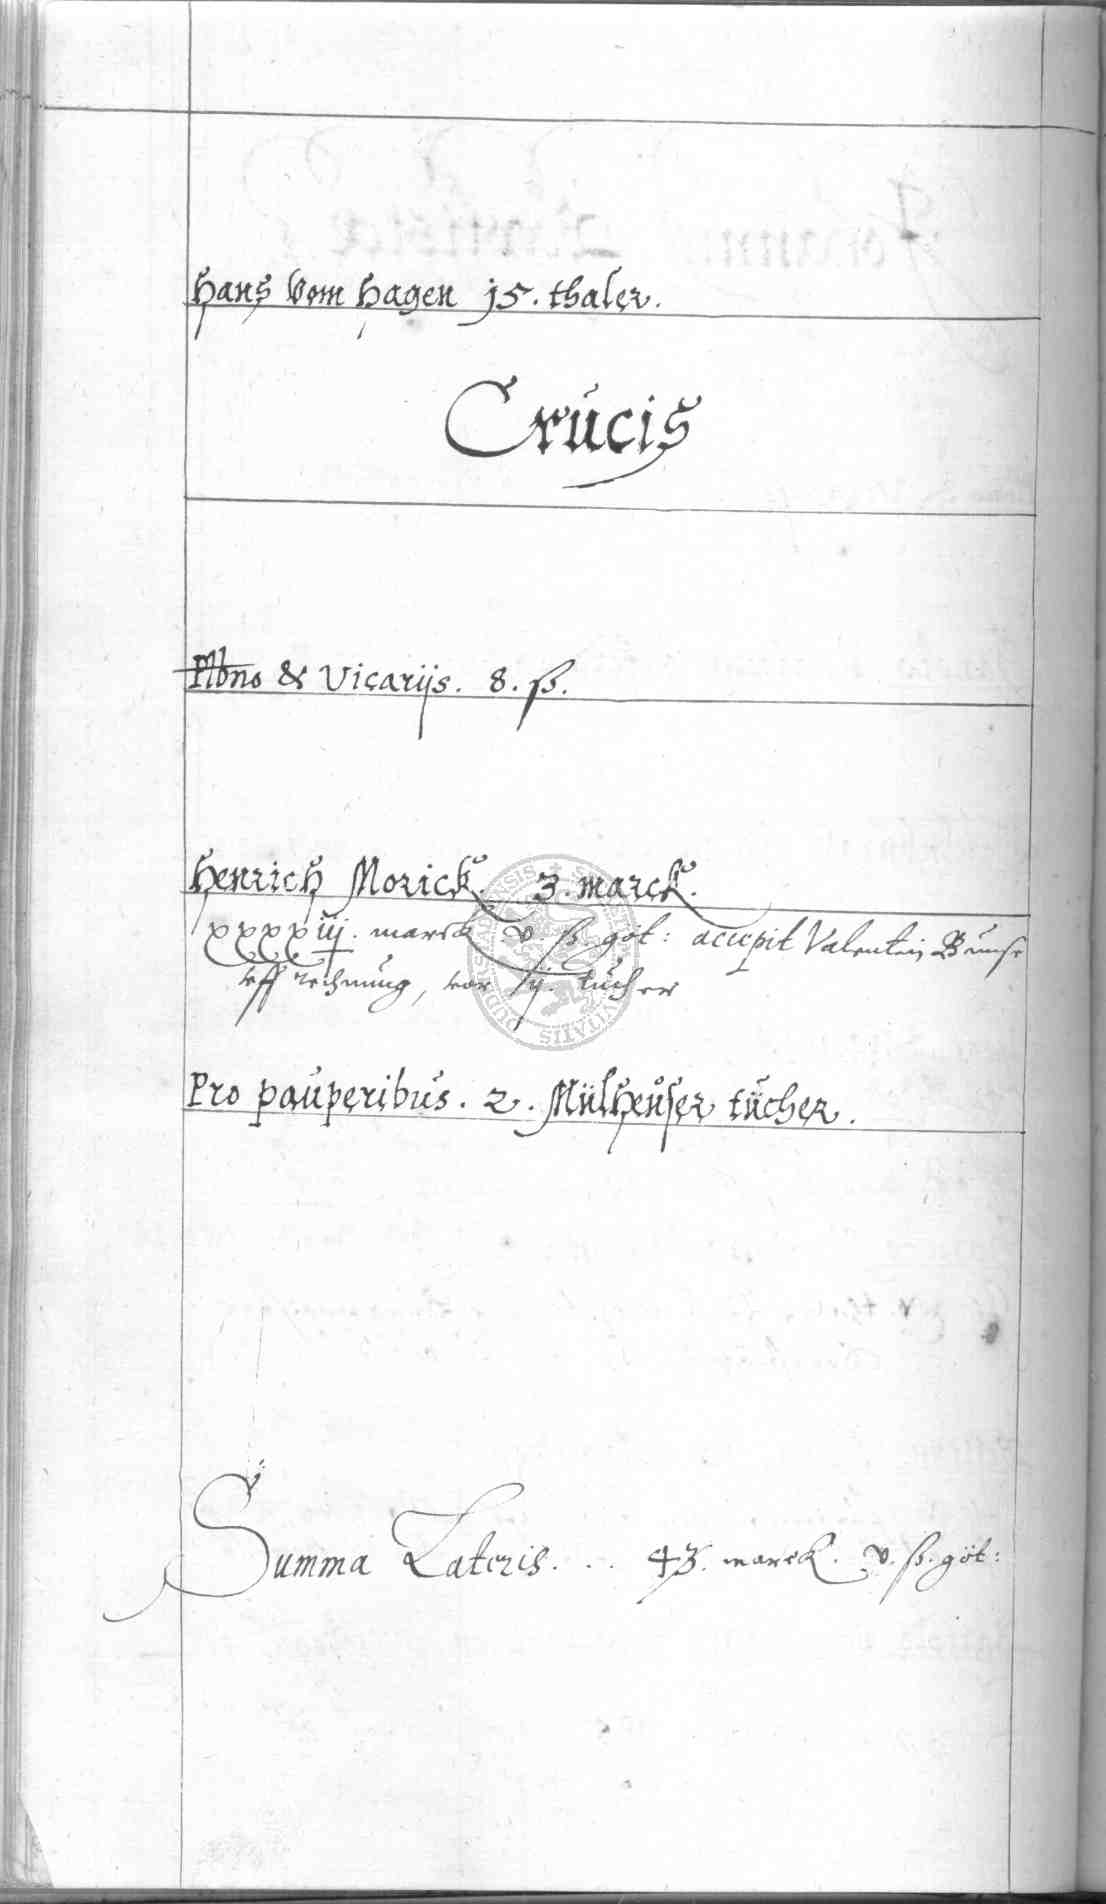 Hans vom Hagen 15. thaler.
Crucis
& Vicarijs. 8. ß.
Henrich Morick. 3. marck.
xxxxiij. marck v. ß. göt: accepit Valentin
vff rechnung, vor ij. tücher
Pro pauperibus. 2. Mülheuser tücher.
Summa Lateris. .. 43. marck. v. ß. göt: